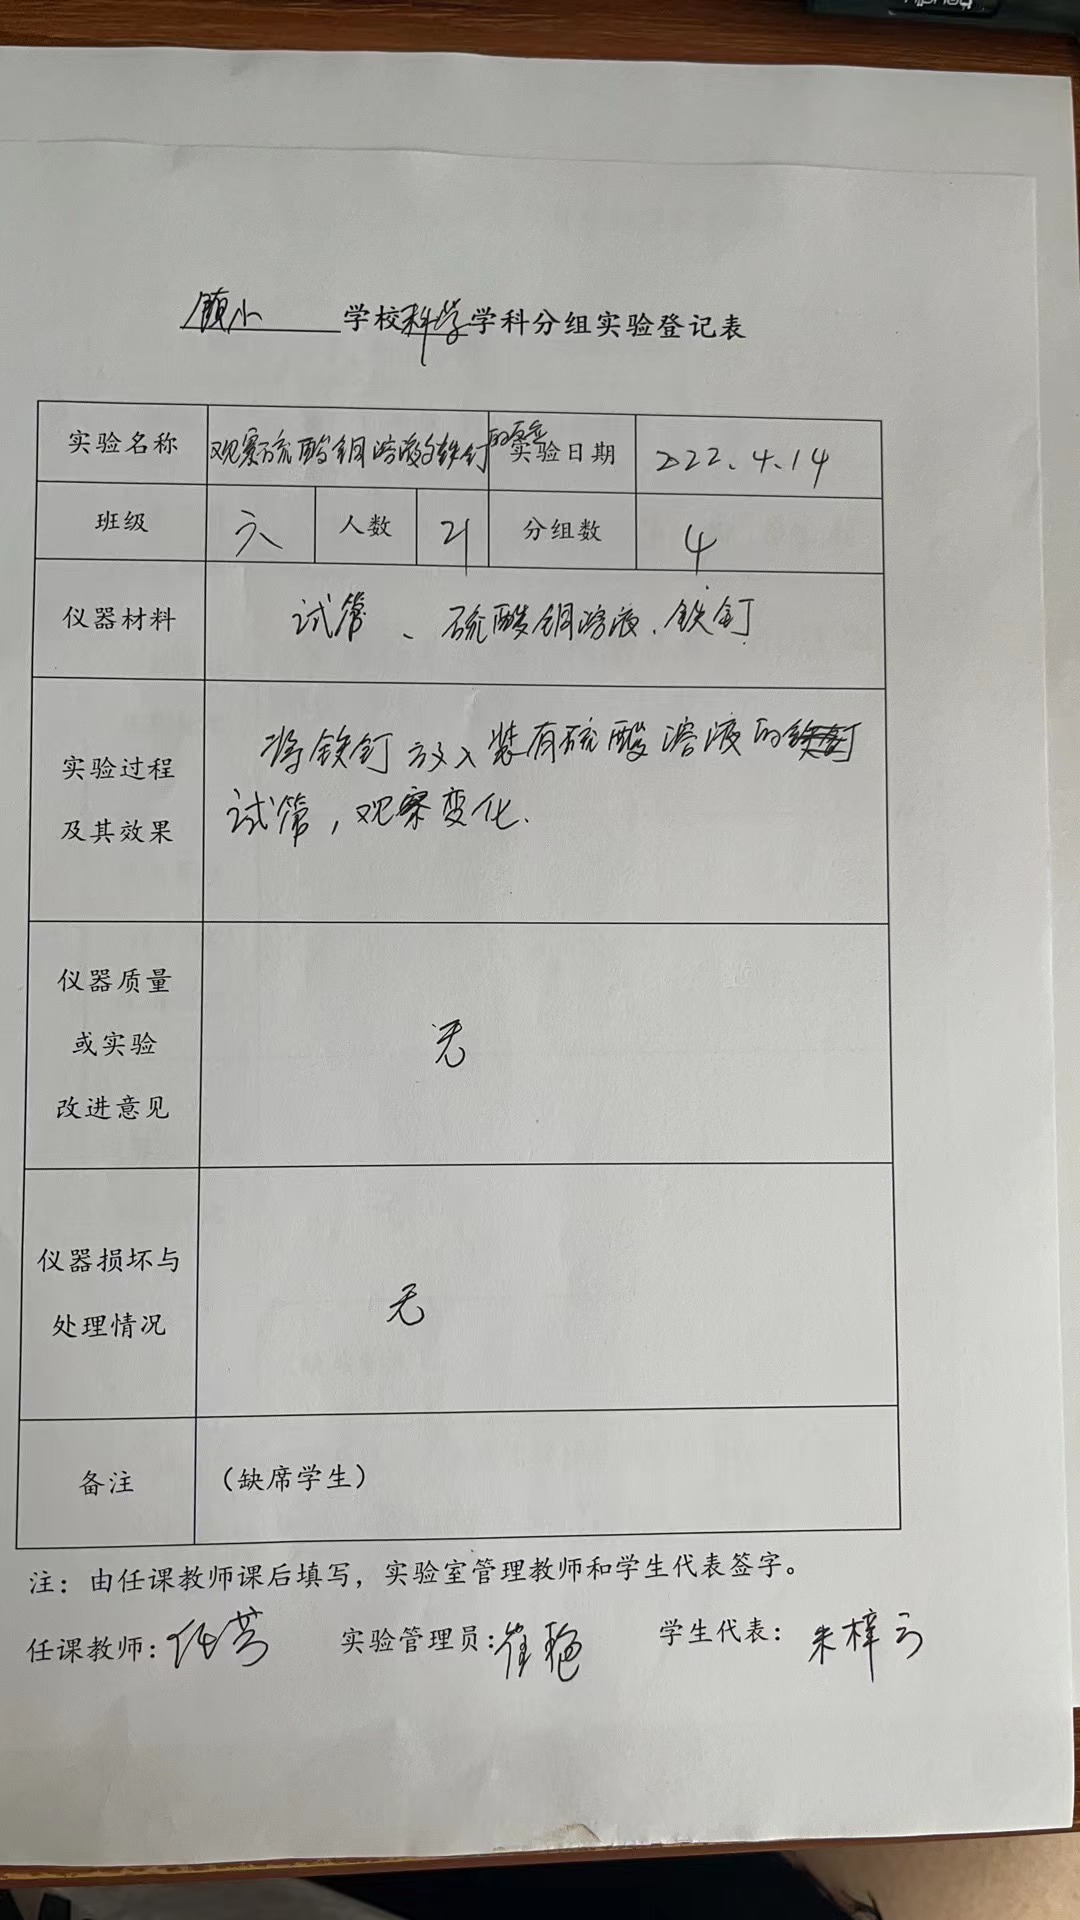 镇小 学校科学学科分组实验登记表
实验名称 观察硫酸铜溶液与铁钉的反应 实验日期 2022.4.14
班级 六 人数 21 分组数 4
仪器材料 试管、硫酸铜溶液、铁钉
实验过程
及其效果
将铁钉放入装有硫酸溶液的铁钉
试管，观察变化.
仪器质量
或实验
改进意见
无
仪器损坏与
处理情况
无
备注 （缺席学生）
注：由任课教师课后填写，实验室管理教师和学生代表签字。
任课教师：任芳 实验管理员：崔艳 学生代表：朱梓云